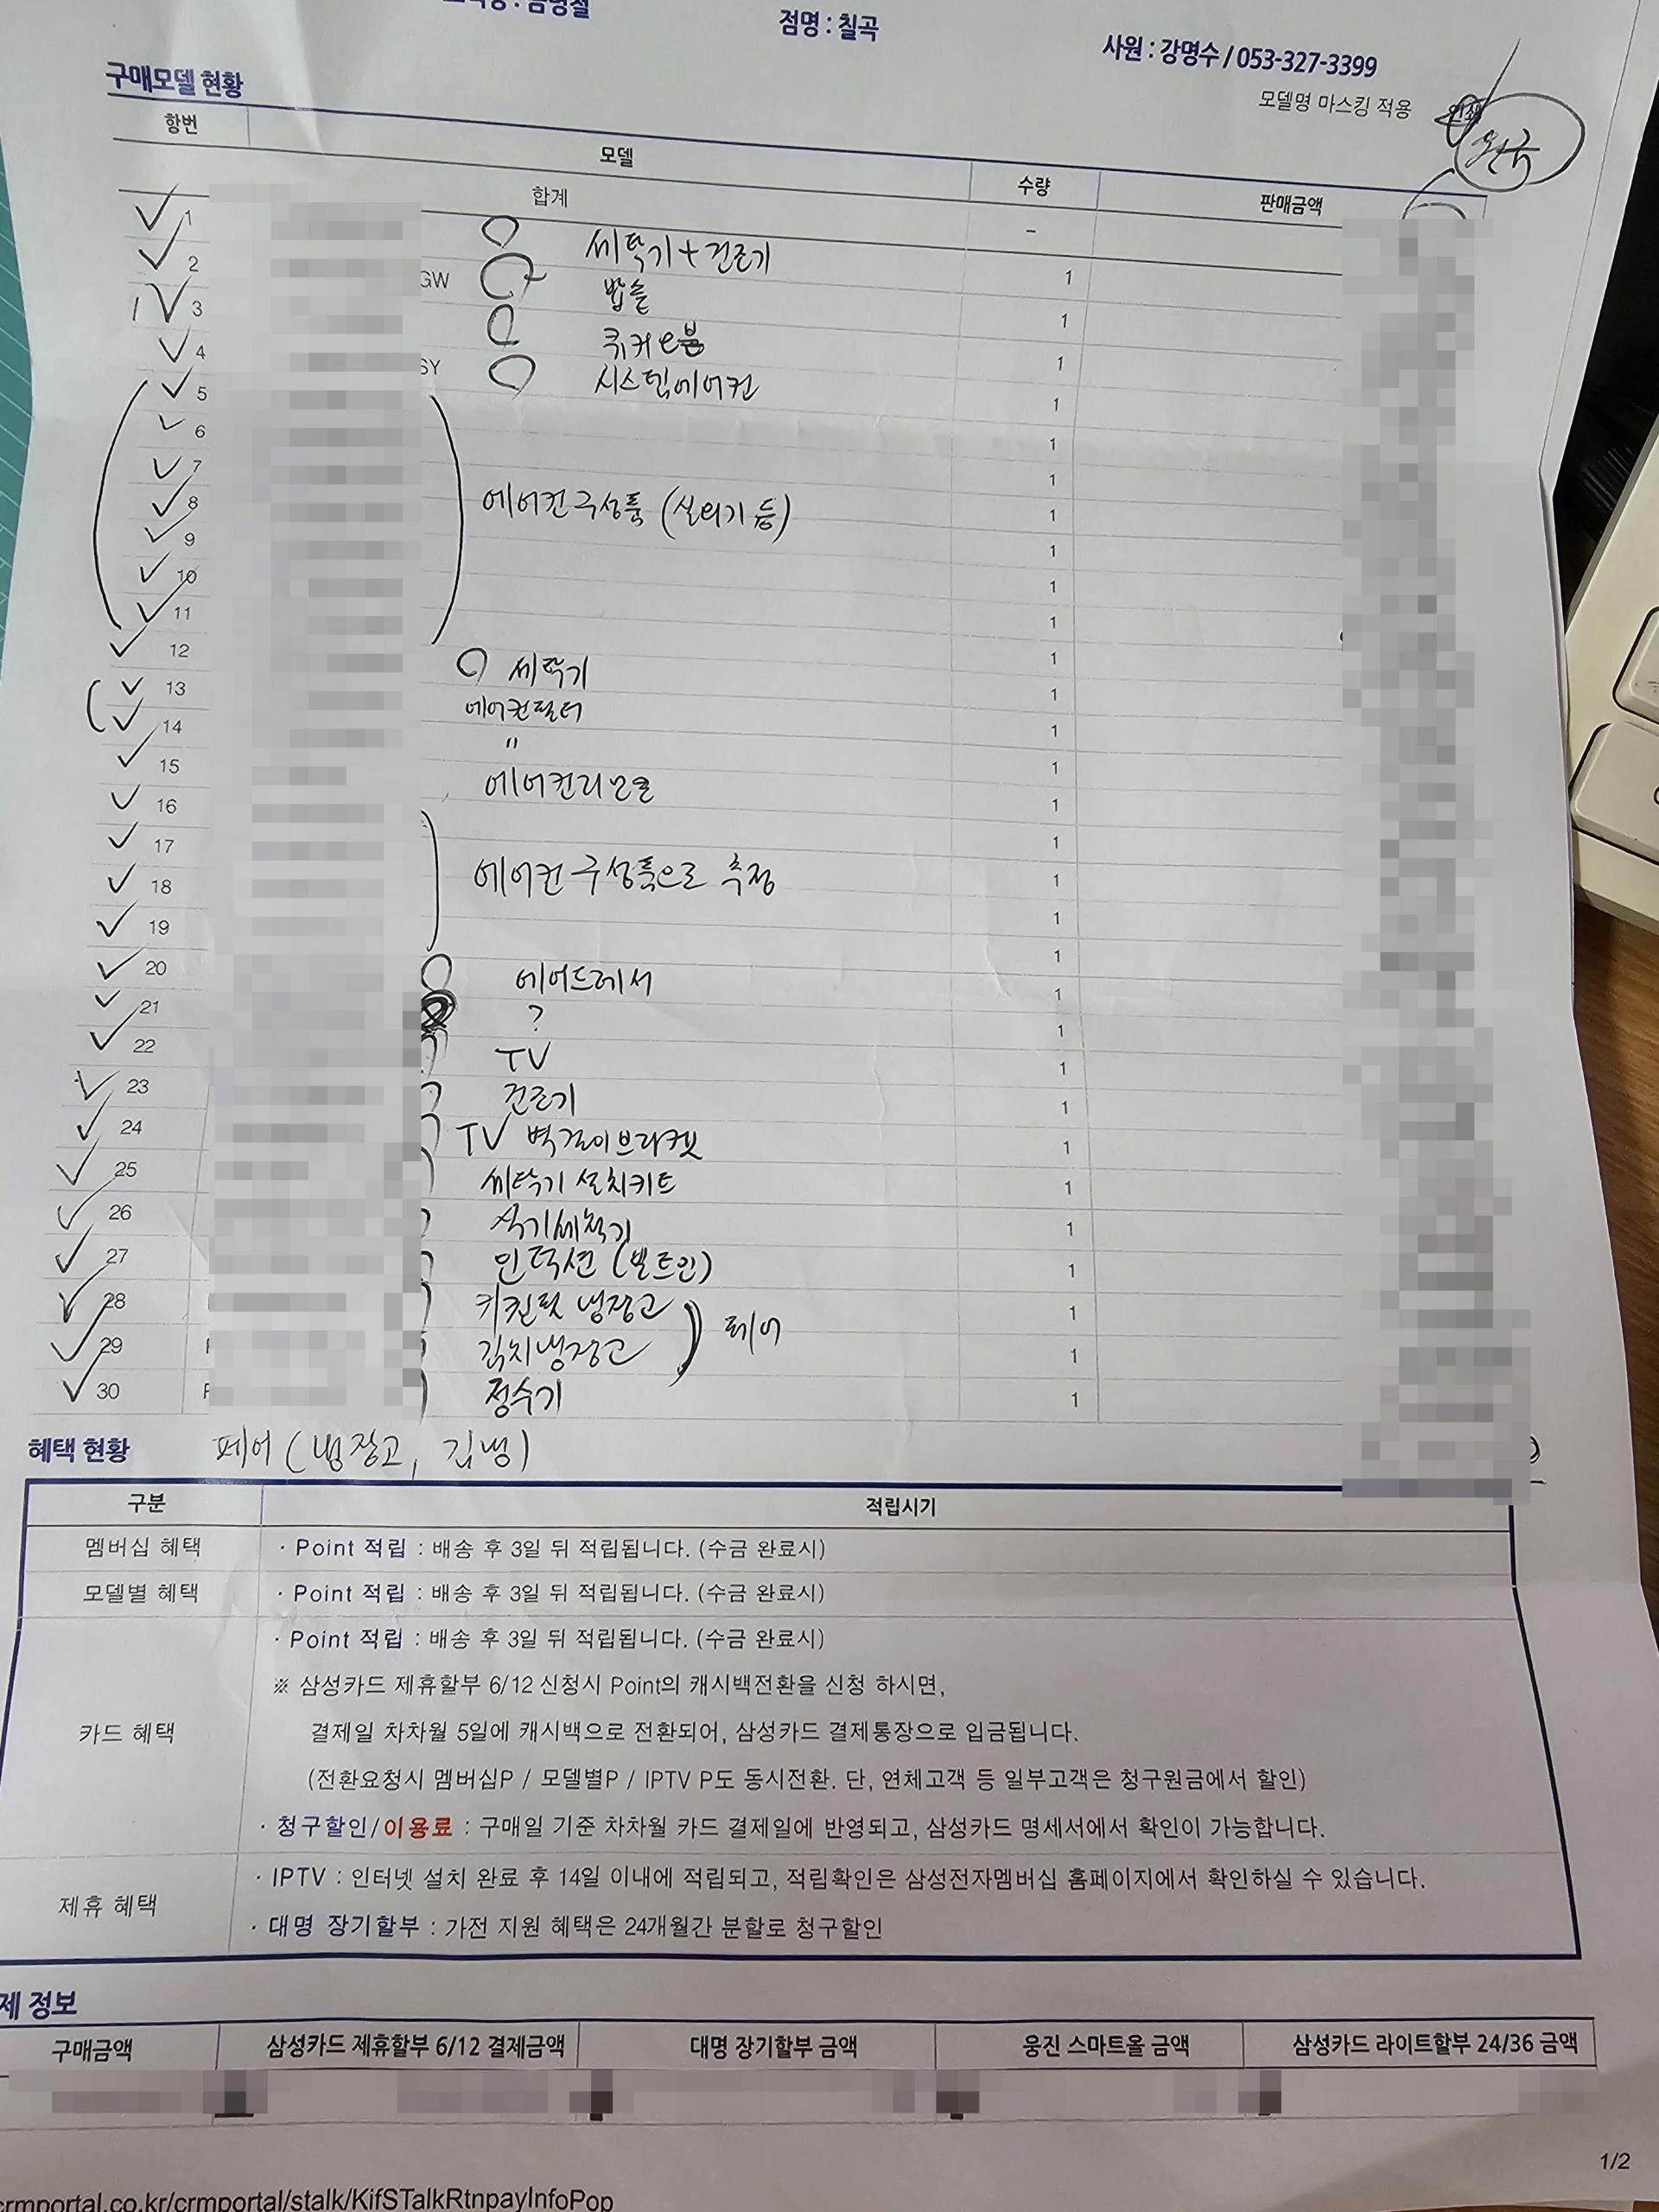 점명 : 칠곡
사원 : 강명수 / 053-327-3399
구매모델 현황
모델명 마스킹 적용
인쇄
항번 모델 수량 판매금액
합계 -
1 세탁기+건조기 1
2 GW 밥솥 1
3 큐커오븐 1
4 SY 시스템에어컨 1
5 1
6 1
7 1
8 에어컨구성품 (실외기 등) 1
9 1
10 1
11 1
12 세탁기 1
13 에어컨필터 1
14 " 1
15 에어컨리모콘 1
16 1
17 에어컨 구성품으로 추정 1
18 1
19 1
20 에어드레서 1
21 ? 1
22 TV 1
23 건조기 1
24 TV 벽걸이브라켓 1
25 세탁기 설치키트 1
26 식기세척기 1
27 인덕션 (빌트인) 1
28 키친핏 냉장고 1
29 김치냉장고 페어 1
30 정수기 1
혜택 현황 페어 (냉장고, 김냉)
구분 적립시기
멤버십 혜택 · Point 적립 : 배송 후 3일 뒤 적립됩니다. (수금 완료시)
모델별 혜택 · Point 적립 : 배송 후 3일 뒤 적립됩니다. (수금 완료시)
· Point 적립 : 배송 후 3일 뒤 적립됩니다. (수금 완료시)
※ 삼성카드 제휴할부 6/12 신청시 Point의 캐시백전환을 신청 하시면,
카드 혜택 결제일 차차월 5일에 캐시백으로 전환되어, 삼성카드 결제통장으로 입금됩니다.
(전환요청시 멤버십P / 모델별P / IPTV P도 동시전환. 단, 연체고객 등 일부고객은 청구원금에서 할인)
· 청구할인/이용료 : 구매일 기준 차차월 카드 결제일에 반영되고, 삼성카드 명세서에서 확인이 가능합니다.
제휴 혜택 · IPTV : 인터넷 설치 완료 후 14일 이내에 적립되고, 적립확인은 삼성전자멤버십 홈페이지에서 확인하실 수 있습니다.
· 대명 장기할부 : 가전 지원 혜택은 24개월간 분할로 청구할인
제 정보
구매금액 삼성카드 제휴할부 6/12 결제금액 대명 장기할부 금액 웅진 스마트올 금액 삼성카드 라이트할부 24/36 금액
1/2
crmportal.co.kr/crmportal/stalk/KifSTalkRtnpayInfoPop